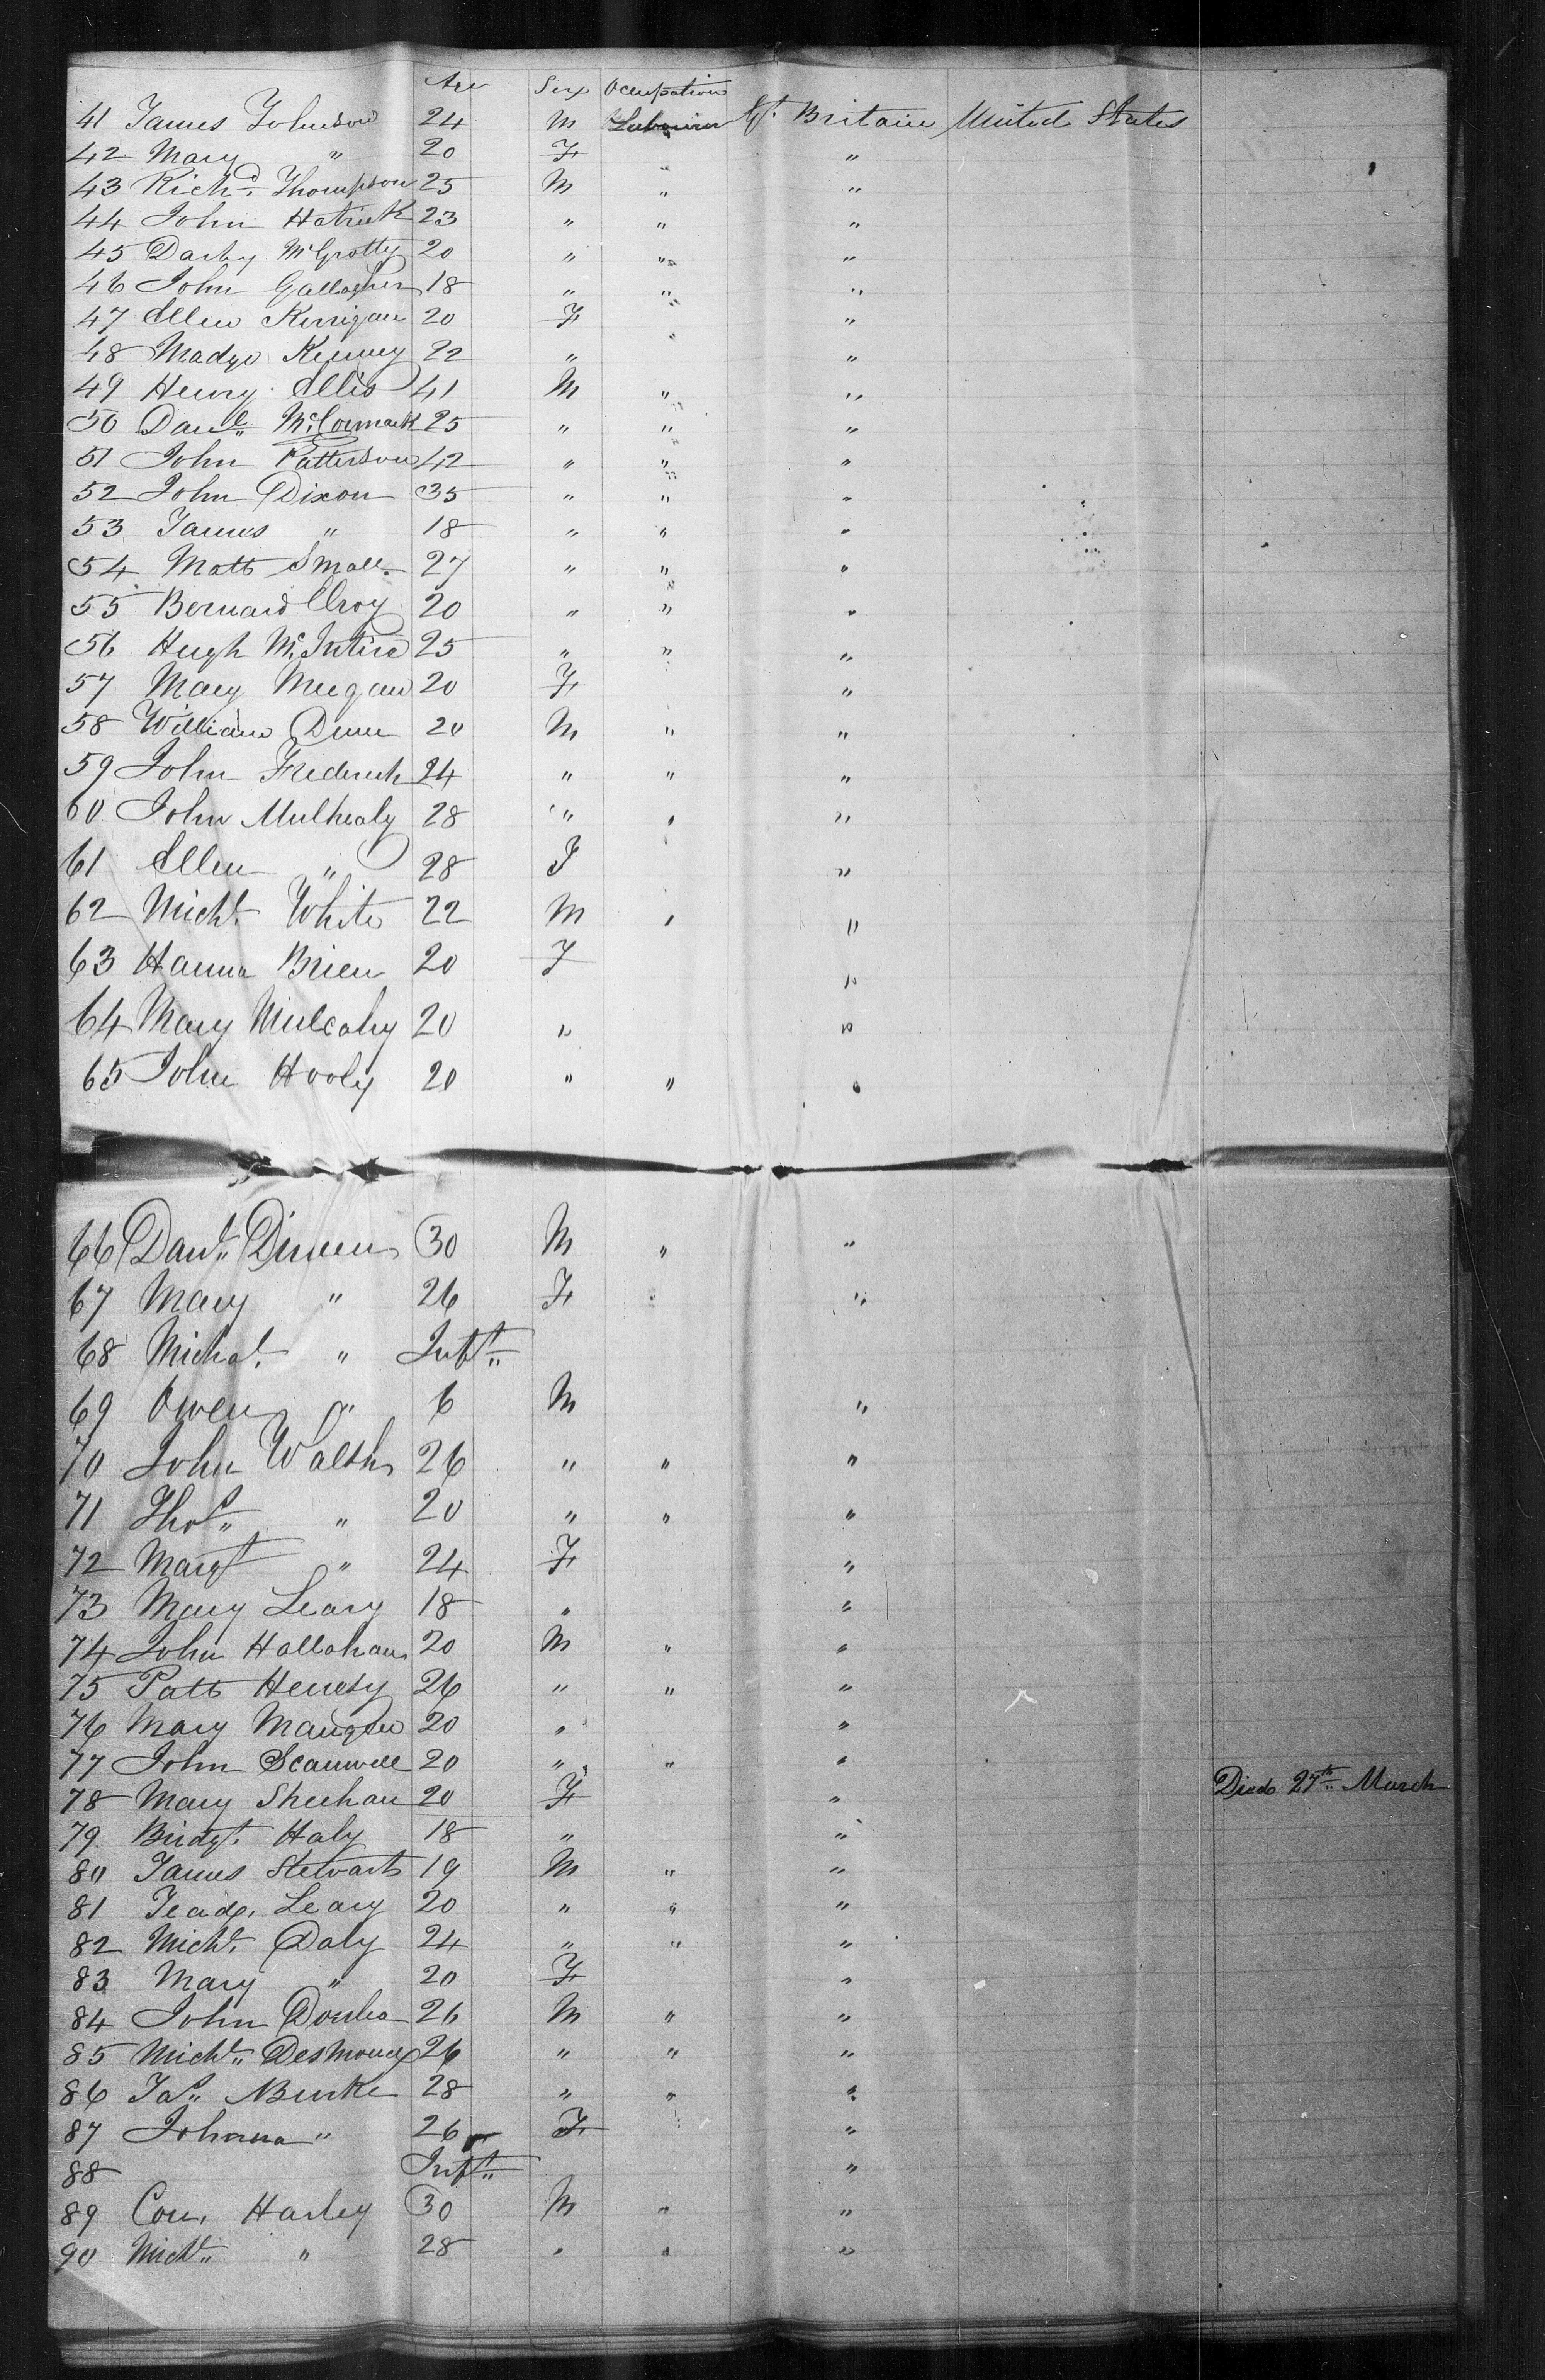 Age Sex Occupation
41 James Johnson 24 M Labourer Gt. Britain United States
42 Mary " 20 F "
43 Richd. Thompson 25 M " "
44 John Hatrick 23 " " "
45 Darby McGrotty 20 " " "
46 John Gallagher 18 " " "
47 Ellen Kerrigan 20 F "
48 Madge Kenney 22 " "
49 Henry Ellis 41 M " "
50 Danl. McCormack 25 " " "
51 John Patterson 42 " " "
52 John Dixon 35 " " "
53 James " 18 " " "
54 Matt Small 27 " " "
55 Bernard Elroy 20 " " "
56 Hugh McIntire 25 " " "
57 Mary Meegan 20 F "
58 William Dunn 20 M " "
59 John Frederick 24 " " "
60 John Mulhealy 28 " " "
61 Ellen " 28 F "
62 Michl. White 22 M " "
63 Hanna Brien 20 F "
64 Mary Mulcahy 20 " "
65 John Hooly 20 " " "
66 Danl. Dineen 30 M " "
67 Mary " 26 F "
68 Michal. " Inft.
69 Owen " 6 M "
70 John Walsh 26 " " "
71 Thos. " 20 " " "
72 Margt " 24 F "
73 Mary Leary 18 " "
74 John Hallahan 20 M " "
75 Patt Henesy 26 " " "
76 Mary Mangan 20 " "
77 John Scanwell 20 " " "
78 Mary Sheehan 20 F " Died 27th March
79 Bridgt. Haly 18 " "
80 James Stewart 19 M " "
81 Teadg. Leary 20 " " "
82 Michl. Daly 24 " " "
83 Mary " 20 F "
84 John 26 M " "
85 Michl. Desmond 26 " " "
86 Jas. Burke 28 " " "
87 Johanna " 26 F "
88 Inft. "
89 Con. Harley 30 M " "
90 Michl. " 28 " " "